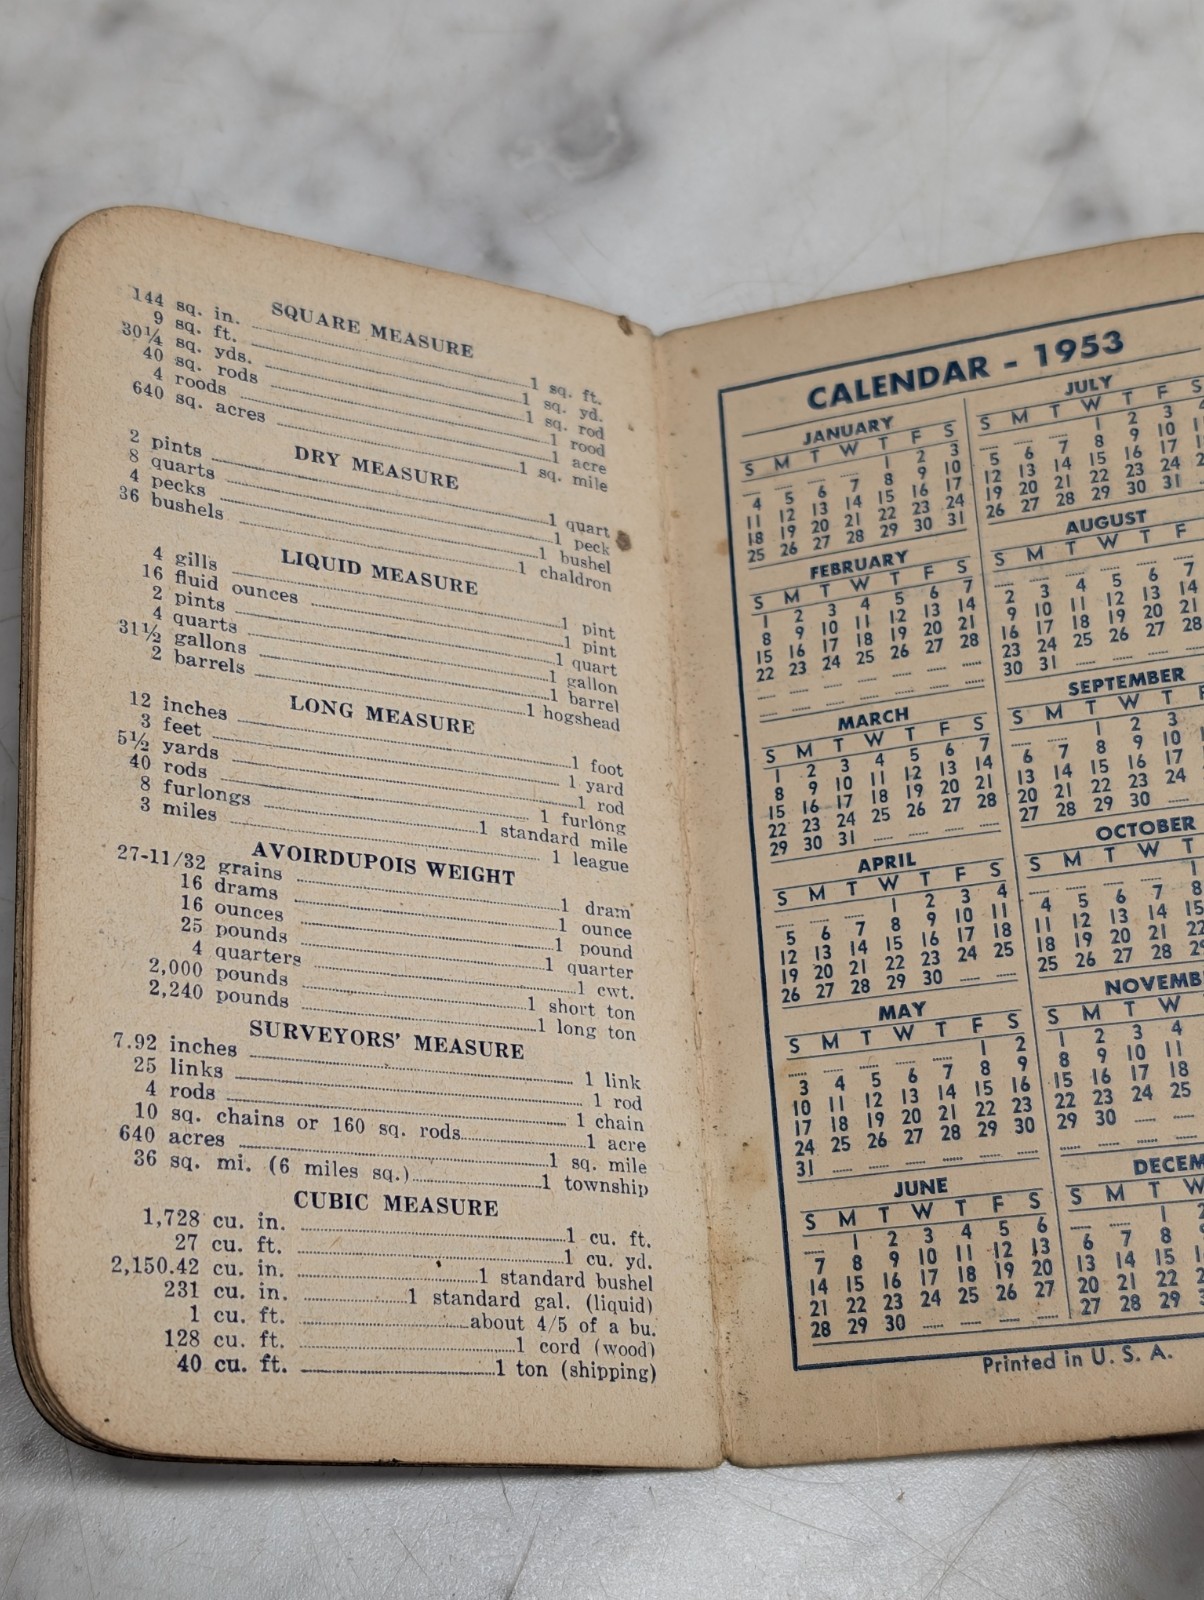 SQUARE MEASURE
144 sq. in. 1 sq. ft.
9 sq. ft. 1 sq. yd.
30¼ sq. yds. 1 sq. rod
40 sq. rods 1 rood
4 roods 1 acre
640 sq. acres 1 sq. mile
DRY MEASURE
2 pints 1 quart
8 quarts 1 peck
4 pecks 1 bushel
36 bushels 1 chaldron
LIQUID MEASURE
4 gills 1 pint
16 fluid ounces 1 pint
2 pints 1 quart
4 quarts 1 gallon
31½ gallons 1 barrel
2 barrels 1 hogshead
LONG MEASURE
12 inches 1 foot
3 feet 1 yard
5½ yards 1 rod
40 rods 1 furlong
8 furlongs 1 standard mile
3 miles 1 league
AVOIRDUPOIS WEIGHT
27-11/32 grains 1 dram
16 drams 1 ounce
16 ounces 1 pound
25 pounds 1 quarter
4 quarters 1 cwt.
2,000 pounds 1 short ton
2,240 pounds 1 long ton
SURVEYORS' MEASURE
7.92 inches 1 link
25 links 1 rod
4 rods 1 chain
10 sq. chains or 160 sq. rods 1 acre
640 acres 1 sq. mile
36 sq. mi. (6 miles sq.) 1 township
CUBIC MEASURE
1,728 cu. in. 1 cu. ft.
27 cu. ft. 1 cu. yd.
2,150.42 cu. in. 1 standard bushel
231 cu. in. 1 standard gal. (liquid)
1 cu. ft. about 4/5 of a bu.
128 cu. ft. 1 cord (wood)
40 cu. ft. 1 ton (shipping)
CALENDAR - 1953
JANUARY
S M T W T F S
1 2 3
4 5 6 7 8 9 10
11 12 13 14 15 16 17
18 19 20 21 22 23 24
25 26 27 28 29 30 31
FEBRUARY
S M T W T F S
1 2 3 4 5 6 7
8 9 10 11 12 13 14
15 16 17 18 19 20 21
22 23 24 25 26 27 28
MARCH
S M T W T F S
1 2 3 4 5 6 7
8 9 10 11 12 13 14
15 16 17 18 19 20 21
22 23 24 25 26 27 28
29 30 31
APRIL
S M T W T F S
1 2 3 4
5 6 7 8 9 10 11
12 13 14 15 16 17 18
19 20 21 22 23 24 25
26 27 28 29 30
MAY
S M T W T F S
1 2
3 4 5 6 7 8 9
10 11 12 13 14 15 16
17 18 19 20 21 22 23
24 25 26 27 28 29 30
31
JUNE
S M T W T F S
1 2 3 4 5 6
7 8 9 10 11 12 13
14 15 16 17 18 19 20
21 22 23 24 25 26 27
28 29 30
JULY
S M T W T F S
1 2 3
5 6 7 8 9 10
12 13 14 15 16 17
19 20 21 22 23 24
26 27 28 29 30 31
AUGUST
S M T W T F
2 3 4 5 6 7
9 10 11 12 13 14
16 17 18 19 20 21
23 24 25 26 27 28
30 31
SEPTEMBER
S M T W T
1 2 3
6 7 8 9 10
13 14 15 16 17
20 21 22 23 24
27 28 29 30
OCTOBER
S M T W T
1
4 5 6 7 8
11 12 13 14 15
18 19 20 21 22
25 26 27 28
NOVEMB
S M T W
1 2 3 4
8 9 10 11
15 16 17 18
22 23 24 25
29 30
DECEM
S M T W
1
6 7 8
13 14 15
20 21 22
27 28 29
Printed in U. S. A.